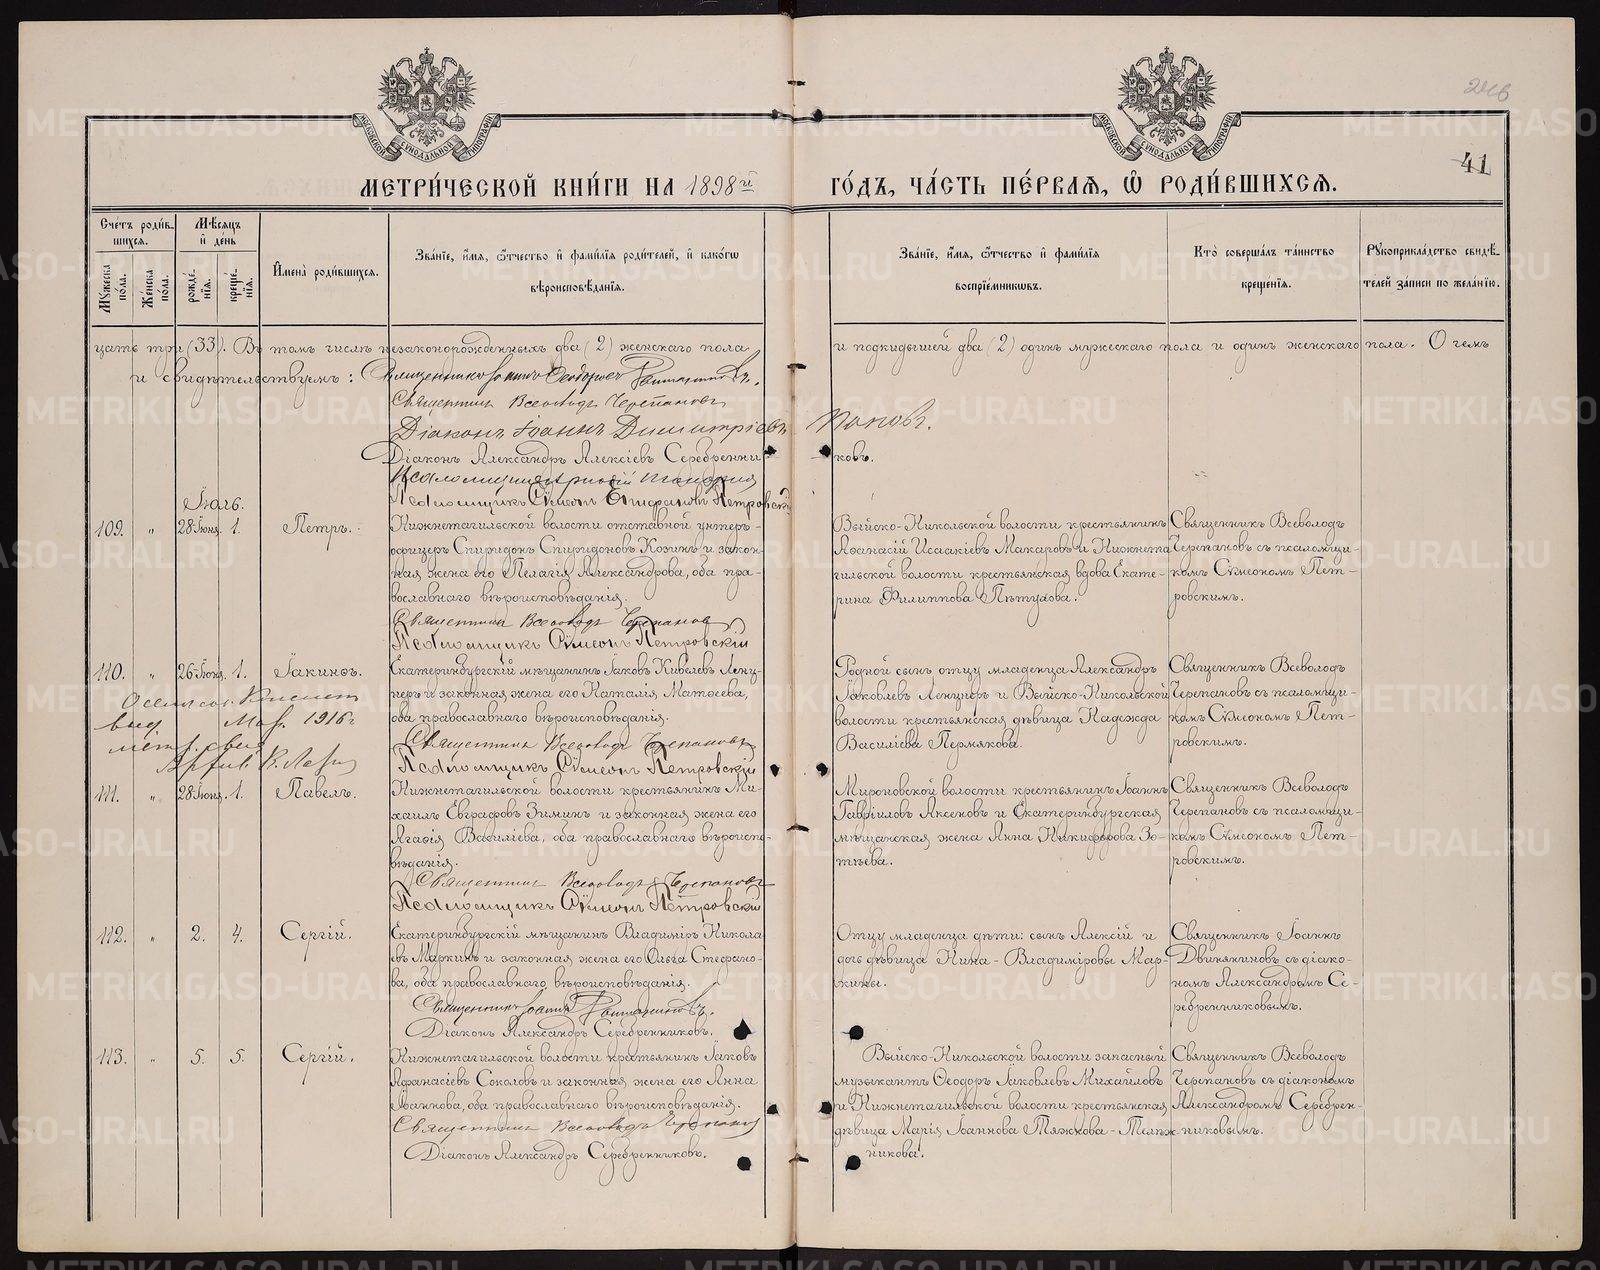 246
41
МЕТРИ́ЧЕСКОЙ КНИ́ГИ НА 1898й ГО́ДЪ, ЧА́СТЬ ПЕ́РВАЯ, Ѽ РОДИ́ВШИХСЯ.
Сче́тъ роди́в-
шихся.
Му́жеска по́ла.
Же́нска по́ла.
Мѣ́сяцъ и де́нь
рожде́-
нія.
креще́-
нія.
Имена̀ роди́вшихся.
Зва́ніе, и́мя, ѻ́тчество и фами́лія роди́телей, и како́гѡ
вѣроисповѣ́данія.
Зва́ніе, и́мя, ѻ́тчество и фами́лія
воспріе́мниковъ.
Кто̀ соверша́лъ та́инство
креще́нія.
Рукоприкла́дство свидѣ́-
телей за́писи по жела́нію.
цать три (33). Въ томъ числѣ незаконорожденныхъ два (2) женскаго пола и подкидышей два (2) одинъ мужескаго пола и одинъ женскаго пола. О чемъ
и свидѣтельствуемъ: Священникъ Іоаннъ Ѳеодоровъ
Священникъ Всеволодъ Черепановъ
Діаконъ Іоаннъ Димитріевъ Поповъ.
Діаконъ Александръ Алексіевъ Серебренни-
ковъ.
Псаломщикъ
Псаломщикъ Сѵмеонъ Епифановъ Петровскій
Іюль.
109. „ 28 Іюня. 1. Петръ.
Нижнетагильской волости отставной унтеръ-
офицеръ Спиридонъ Спиридоновъ Козинъ и закон-
ная жена его Пелагія Александрова, оба пра-
вославнаго вѣроисповѣданія.
Священникъ Всеволодъ Черепановъ
Псаломщикъ Сѵмеонъ Петровскій
Выйско-Никольской волости крестьянинъ
Аѳанасій Исаакіевъ Макаровъ и Нижнета-
гильской волости крестьянская вдова Екате-
рина Филиппова Пѣтухова.
Священникъ Всеволодъ
Черепановъ съ псаломщи-
комъ Сѵмеономъ Пет-
ровскимъ.
110. „ 26 Іюня. 1. Іакинѳъ.
выд. Мар. 1916 г
метр. свид
Екатеринбургскій мѣщанинъ Іаковъ Кивелевъ Ленц-
неръ и законная жена его Наталія Матѳеева,
оба православнаго вѣроисповѣданія.
Священникъ Всеволодъ Черепановъ
Псаломщикъ Сѵмеонъ Петровскій
Родной сынъ отцу младенца Александръ
Іаковлевъ Ленцнеръ и Выйско-Никольской
волости крестьянская дѣвица Надежда
Василіева Пермякова.
Священникъ Всеволодъ
Черепановъ съ псаломщи-
комъ Сѵмеономъ Пет-
ровскимъ.
111. „ 28 Іюня. 1. Павелъ.
Нижнетагильской волости крестьянинъ Ми-
хаилъ Евграфовъ Зиминъ и законная жена его
Агаѳія Василіева, оба православнаго вѣроиспо-
вѣданія.
Священникъ Всеволодъ Черепановъ
Псаломщикъ Сѵмеонъ Петровскій
Мироновской волости крестьянинъ Іоаннъ
Гавріиловъ Аксеновъ и Екатеринбургская
мѣщанская жена Анна Никифорова Зо-
тѣева.
Священникъ Всеволодъ
Черепановъ съ псаломщи-
комъ Сѵмеономъ Пет-
ровскимъ.
112. „ 2. 4. Сергій.
Екатеринбургскій мѣщанинъ Владиміръ Никола-
евъ Маркинъ и законная жена его Ольга Стефано-
ва, оба православнаго вѣроисповѣданія.
Священникъ Іоаннъ
Діаконъ Александръ Серебренниковъ.
Отцу младенца дѣти: сынъ Алексій и
дочь дѣвица Нина - Владиміровы Мар-
кины.
Священникъ Іоаннъ
Двиняниновъ съ діако-
номъ Александромъ Се-
ребренниковымъ.
113. „ 5. 5. Сергій.
Нижнетагильской волости крестьянинъ Іаковъ
Аѳанасіевъ Соколовъ и законная жена его Анна
Іоаннова, оба православнаго вѣроисповѣданія.
Священникъ Всеволодъ Черепановъ
Діаконъ Александръ Серебренниковъ.
Выйско-Никольской волости запасный
музыкантъ Ѳеодоръ Іаковлевъ Михайловъ
и Нижнетагильской волости крестьянская
дѣвица Марія Іоаннова Тяжкова-Телѣж-
никова.
Священникъ Всеволодъ
Черепановъ съ діакономъ
Александромъ Серебрен-
никовымъ.